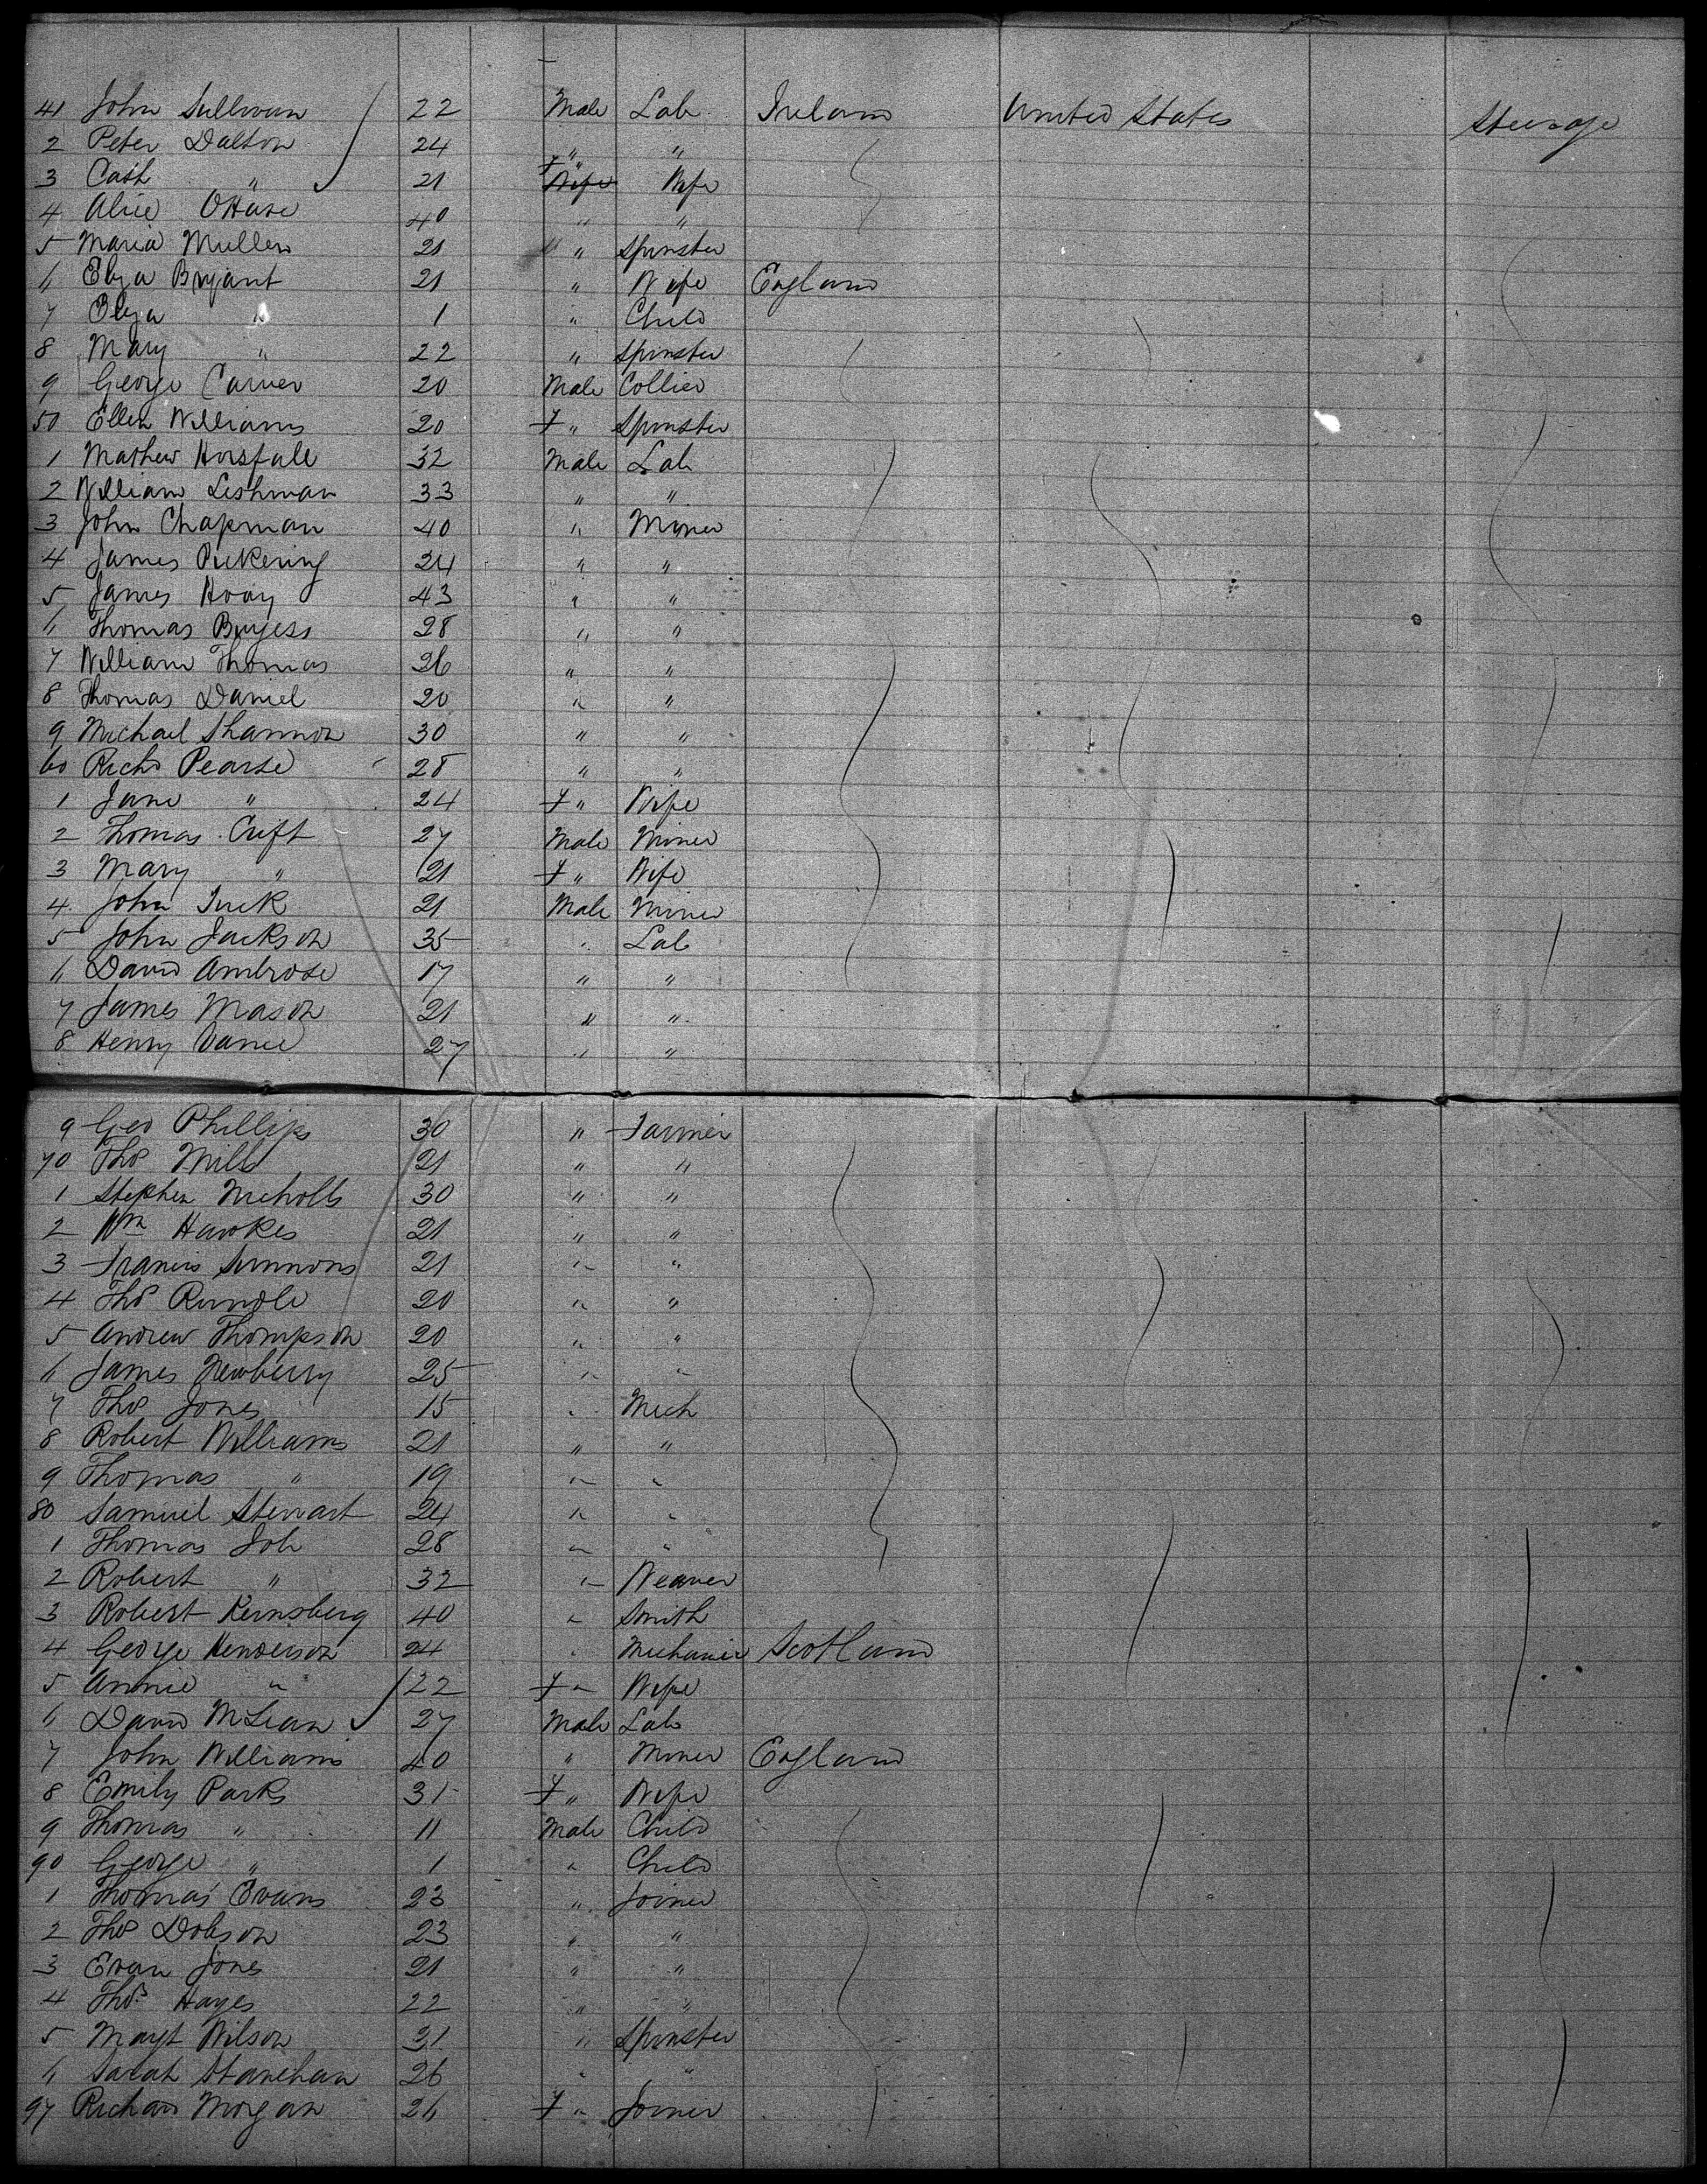 41 John Sullivan 22 Male Lab Ireland United States Steerage
2 Peter Dalton 24 " "
3 Cath " 21 F " Wife
4 Alice OHare 40 " "
5 Maria Mullen 21 " Spinster
6 Eliza Bryant 21 " Wife England
7 Eliza " 1 " Child
8 Mary " 22 " Spinster
9 George Carver 20 Male Collier
50 Ellen Williams 20 F " Spinster
1 Mathew Horsfall 32 Male Lab
2 William Lishman 33 " "
3 John Chapman 40 " Miner
4 James Pickering 24 " "
5 James Hoay 43 " "
6 Thomas Burgess 28 " "
7 William Thomas 26 " "
8 Thomas Daniel 20 " "
9 Michael Shannon 30 " "
60 Richd Pearse 28 " "
1 Jane " 24 F " Wife
2 Thomas Cuft 27 Male Miner
3 Mary " 21 F " Wife
4 John Tuck 21 Male Miner
5 John Jackson 35 " Lab
6 David Ambrose 17 " "
7 James Mason 21 " "
8 Henry Vance 27 " "
9 Geo Phillips 30 " Farmer
70 Thos Mills 21 " "
1 Stephen Nicholls 30 " "
2 Wm Hawkes 21 " "
3 Francis Simmons 21 " "
4 Thos Rundle 20 " "
5 Andrew Thompson 20 " "
6 James Newberry 25 " "
7 Thos Jones 15 " Mech
8 Robert Williams 21 " "
9 Thomas " 19 " "
80 Samuel Stewart 24 " "
1 Thomas Job 28 " "
2 Robert " 32 " Weaver
3 Robert Kernsberg 40 " Smith
4 George Henderson 24 " Mechanic Scotland
5 Annie " 22 F " Wife
6 David McLean 27 Male Lab
7 John Williams 40 " Miner England
8 Emily Parks 31 F " Wife
9 Thomas " 11 Male Child
90 George " 1 " Child
1 Thomas Evans 23 " Joiner
2 Thos Dobson 23 " "
3 Evan Jones 21 " "
4 Thos Hayes 22 " "
5 Magt Wilson 31 " Spinster
6 Sarah Stanehan 26 " "
97 Richard Morgan 26 F " Joiner